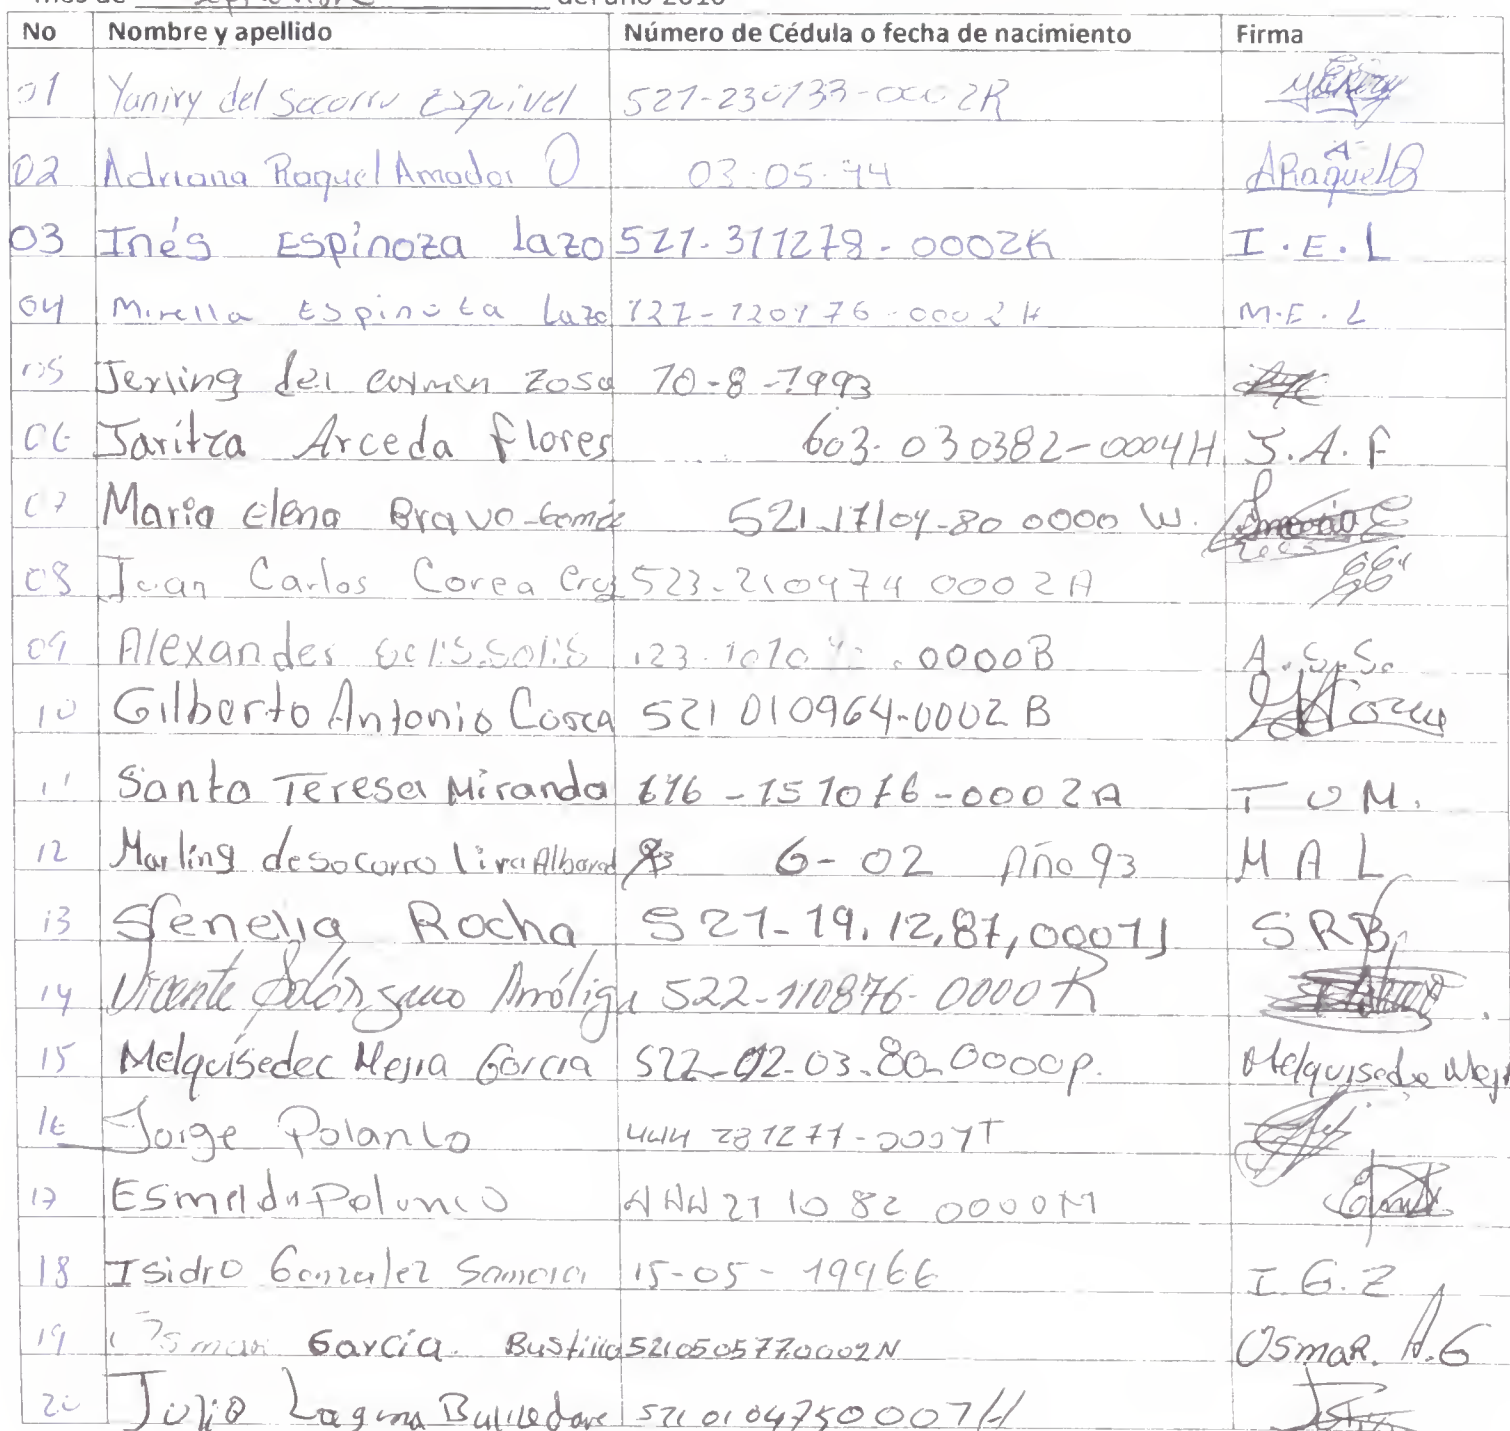 mes de septiembre del año 2016
No Nombre y apellido Número de Cédula o fecha de nacimiento Firma
01 Yaniry del Socorro Esquivel 521-230133-0002R
02 Adriana Raquel Amador O 03-05-94 ARaquel A O
03 Inés Espinoza Lazo 521-311278-0002K I.E.L
04 Mirella Espinoza Lazo 127-120176-0002H M.E.L
05 Jerling del Carmen Zosa 10-8-1993
06 Jaritza Arceda Flores 603-030382-0004H J.A.F
07 Maria Elena Bravo Gomez 521.17104-80 0000 W.
08 Juan Carlos Corea Cruz 523-210474 0002A
09 Alexander Solis.Solis 123-1010 .0000B A.S.S.
10 Gilberto Antonio Corea 521 010964-0002B
11 Santa Teresa Miranda 616-151076-0002A T U M.
12 Marling de socorro lira Albarad 6-02 Año 93 M A L
13 Senelia Rocha 521-19.12,87,0001J SRB
14 Vicente Solórzano Amóliga 522-110876-0000K
15 Melquisedec Mejia Garcia 522-02-03-80-0000P. Melquisedec Mej
16 Jorge Polanco 444 281277-0001T
17 Esmelda Polanco 444 21 10 82 0000M
18 Isidro Gonzalez Samora 15-05-19966 I.G.Z
19 Osmar García Bustillo 5210505770002N Osmar. A.G
20 Julio Laguna 521 010475 0007H